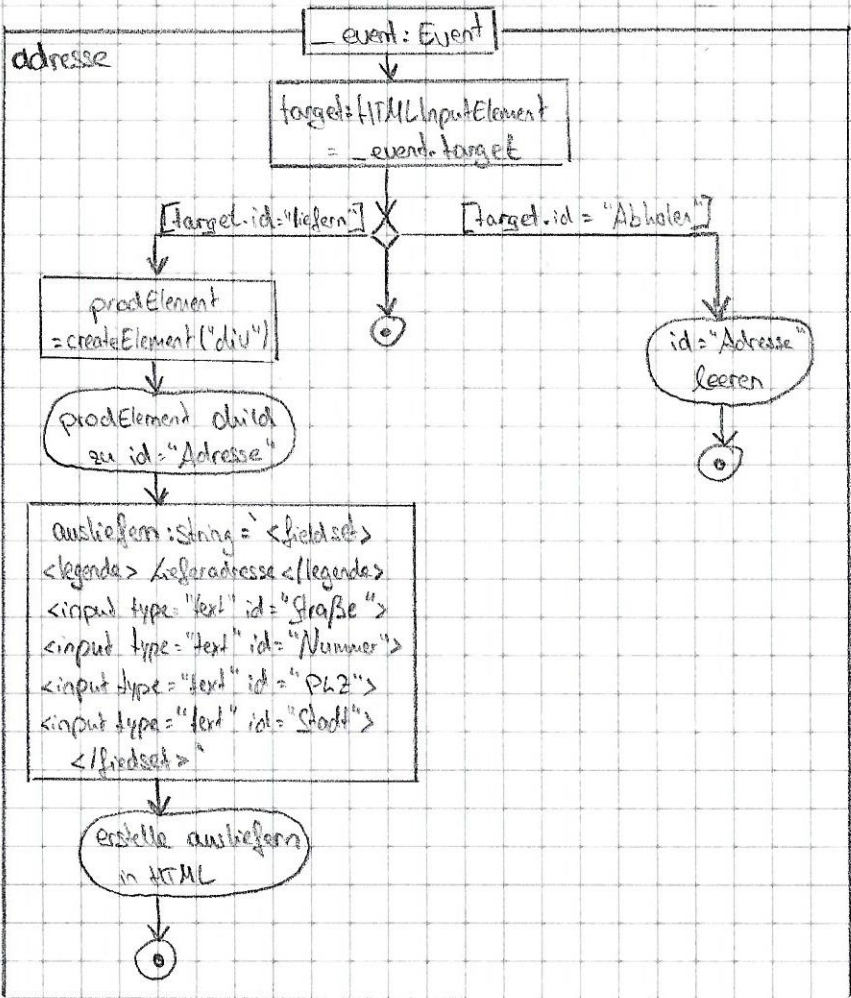 _event: Event
adresse
target: HTMLInputElement
= _event.target
[target.id="liefern"]
[target.id = "Abholen"]
prodElement
= createElement("div")
id="Adresse"
leeren
prodElement child
zu id="Adresse"
ausliefern: string = `<fieldset>
<legende> Lieferadresse </legende>
<input type="text" id="Straße">
<input type="text" id="Nummer">
<input type="text" id="PLZ">
<input type="text" id="Stadt">
</fiedset>`
erstelle ausliefern
in HTML